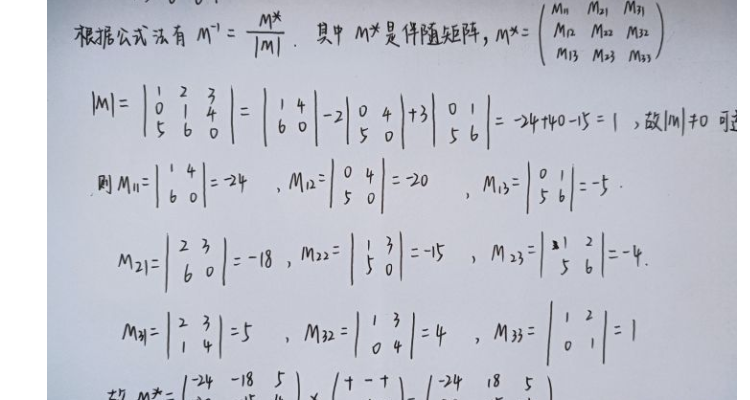 根据公式法有 M⁻¹ = M*/|M| . 其中 M* 是伴随矩阵, M* = (M₁₁ M₂₁ M₃₁; M₁₂ M₂₂ M₃₂; M₁₃ M₂₃ M₃₃)
|M| = |1 2 3; 0 1 4; 5 6 0| = |1 4; 6 0| -2 |0 4; 5 0| +3 |0 1; 5 6| = -24+40-15 = 1 , 故|M|≠0 可
则 M₁₁ = |1 4; 6 0| = -24 , M₁₂ = |0 4; 5 0| = -20 , M₁₃ = |0 1; 5 6| = -5 .
M₂₁ = |2 3; 6 0| = -18 , M₂₂ = |1 3; 5 0| = -15 , M₂₃ = |1 2; 5 6| = -4 .
M₃₁ = |2 3; 1 4| = 5 , M₃₂ = |1 3; 0 4| = 4 , M₃₃ = |1 2; 0 1| = 1
故 M* = (-24 -18 5) × (+ - +) = (-24 18 5)